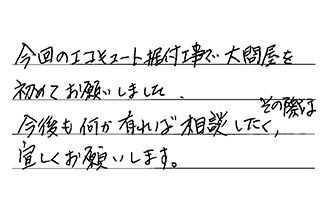 今回のエコキュート据付工事で大問屋を
初めてお願いしました、
今後も何か有れば相談したく、その際は
宜しくお願いします。